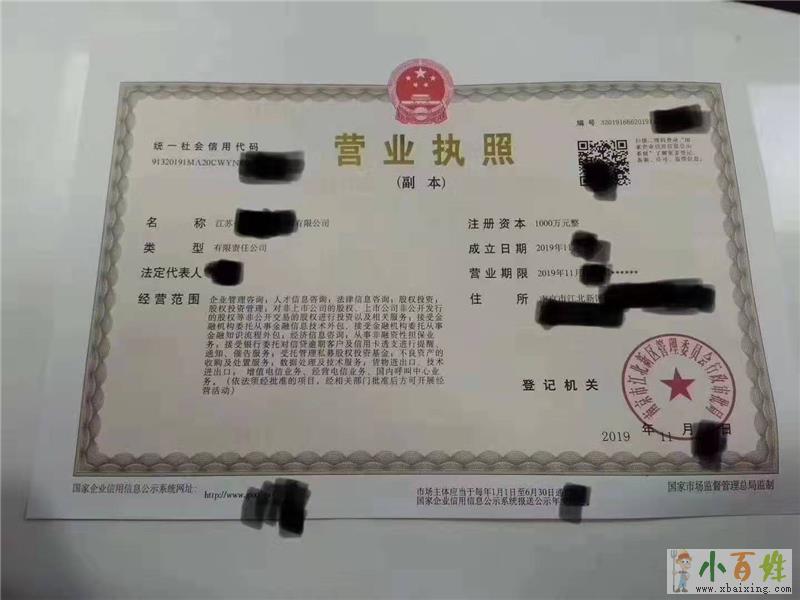 编 号 320191666201911
统一社会信用代码
91320191MA20CWYN
营业执照
(副 本)
扫描二维码登录“国
家企业信用信息公示
系统”了解更多登记、
备案、许可、监管信息。
名 称 江苏 有限公司
类 型 有限责任公司
法定代表人
经营范围 企业管理咨询；人才信息咨询；法律信息咨询；股权投资；
股权投资管理；对非上市公司的股权、上市公司非公开发行
的股权等非公开交易的股权进行投资以及相关服务；接受金
融机构委托从事金融信息技术外包、接受金融机构委托从事
金融知识流程外包；经济信息咨询；从事非融资性担保业
务；接受银行委托对信贷逾期客户及信用卡透支进行提醒、
通知、催告服务；受托管理私募股权投资基金；不良资产的
收购及处置服务；数据处理及技术服务；货物进出口、技术
进出口； 增值电信业务、经营电信业务、国内呼叫中心业
务。（依法须经批准的项目，经相关部门批准后方可开展经
营活动）
注册资本 1000万元整
成立日期 2019年11
营业期限 2019年11月 ******
住 所 南京市江北新区
登记机关
南京市江北新区管理委员会行政审批局
2019 年 11 月 日
国家企业信用信息公示系统网址： http://www.gsxt
市场主体应当于每年1月1日至6月30日通过
国家企业信用信息公示系统报送公示年度
国家市场监督管理总局监制
小百姓
www.xbaixing.com